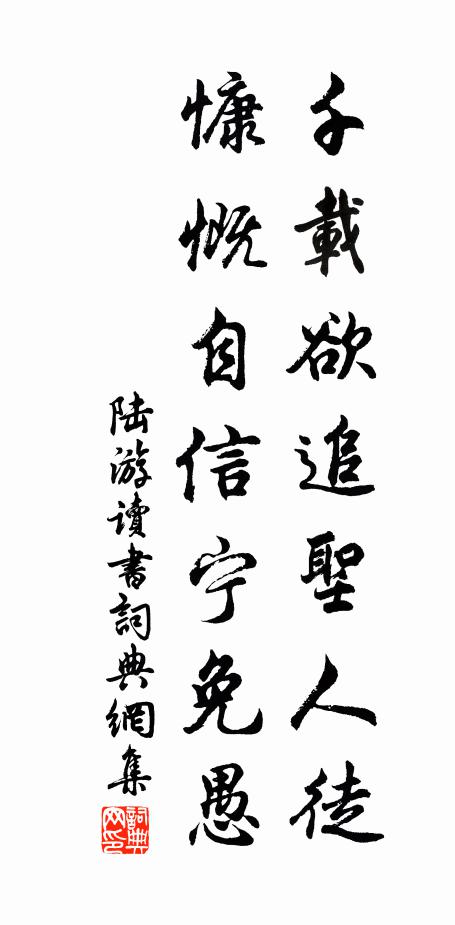 千載欲追聖人徒
慷慨自信宁免愚
陆游读書詞典網集
詞典網印